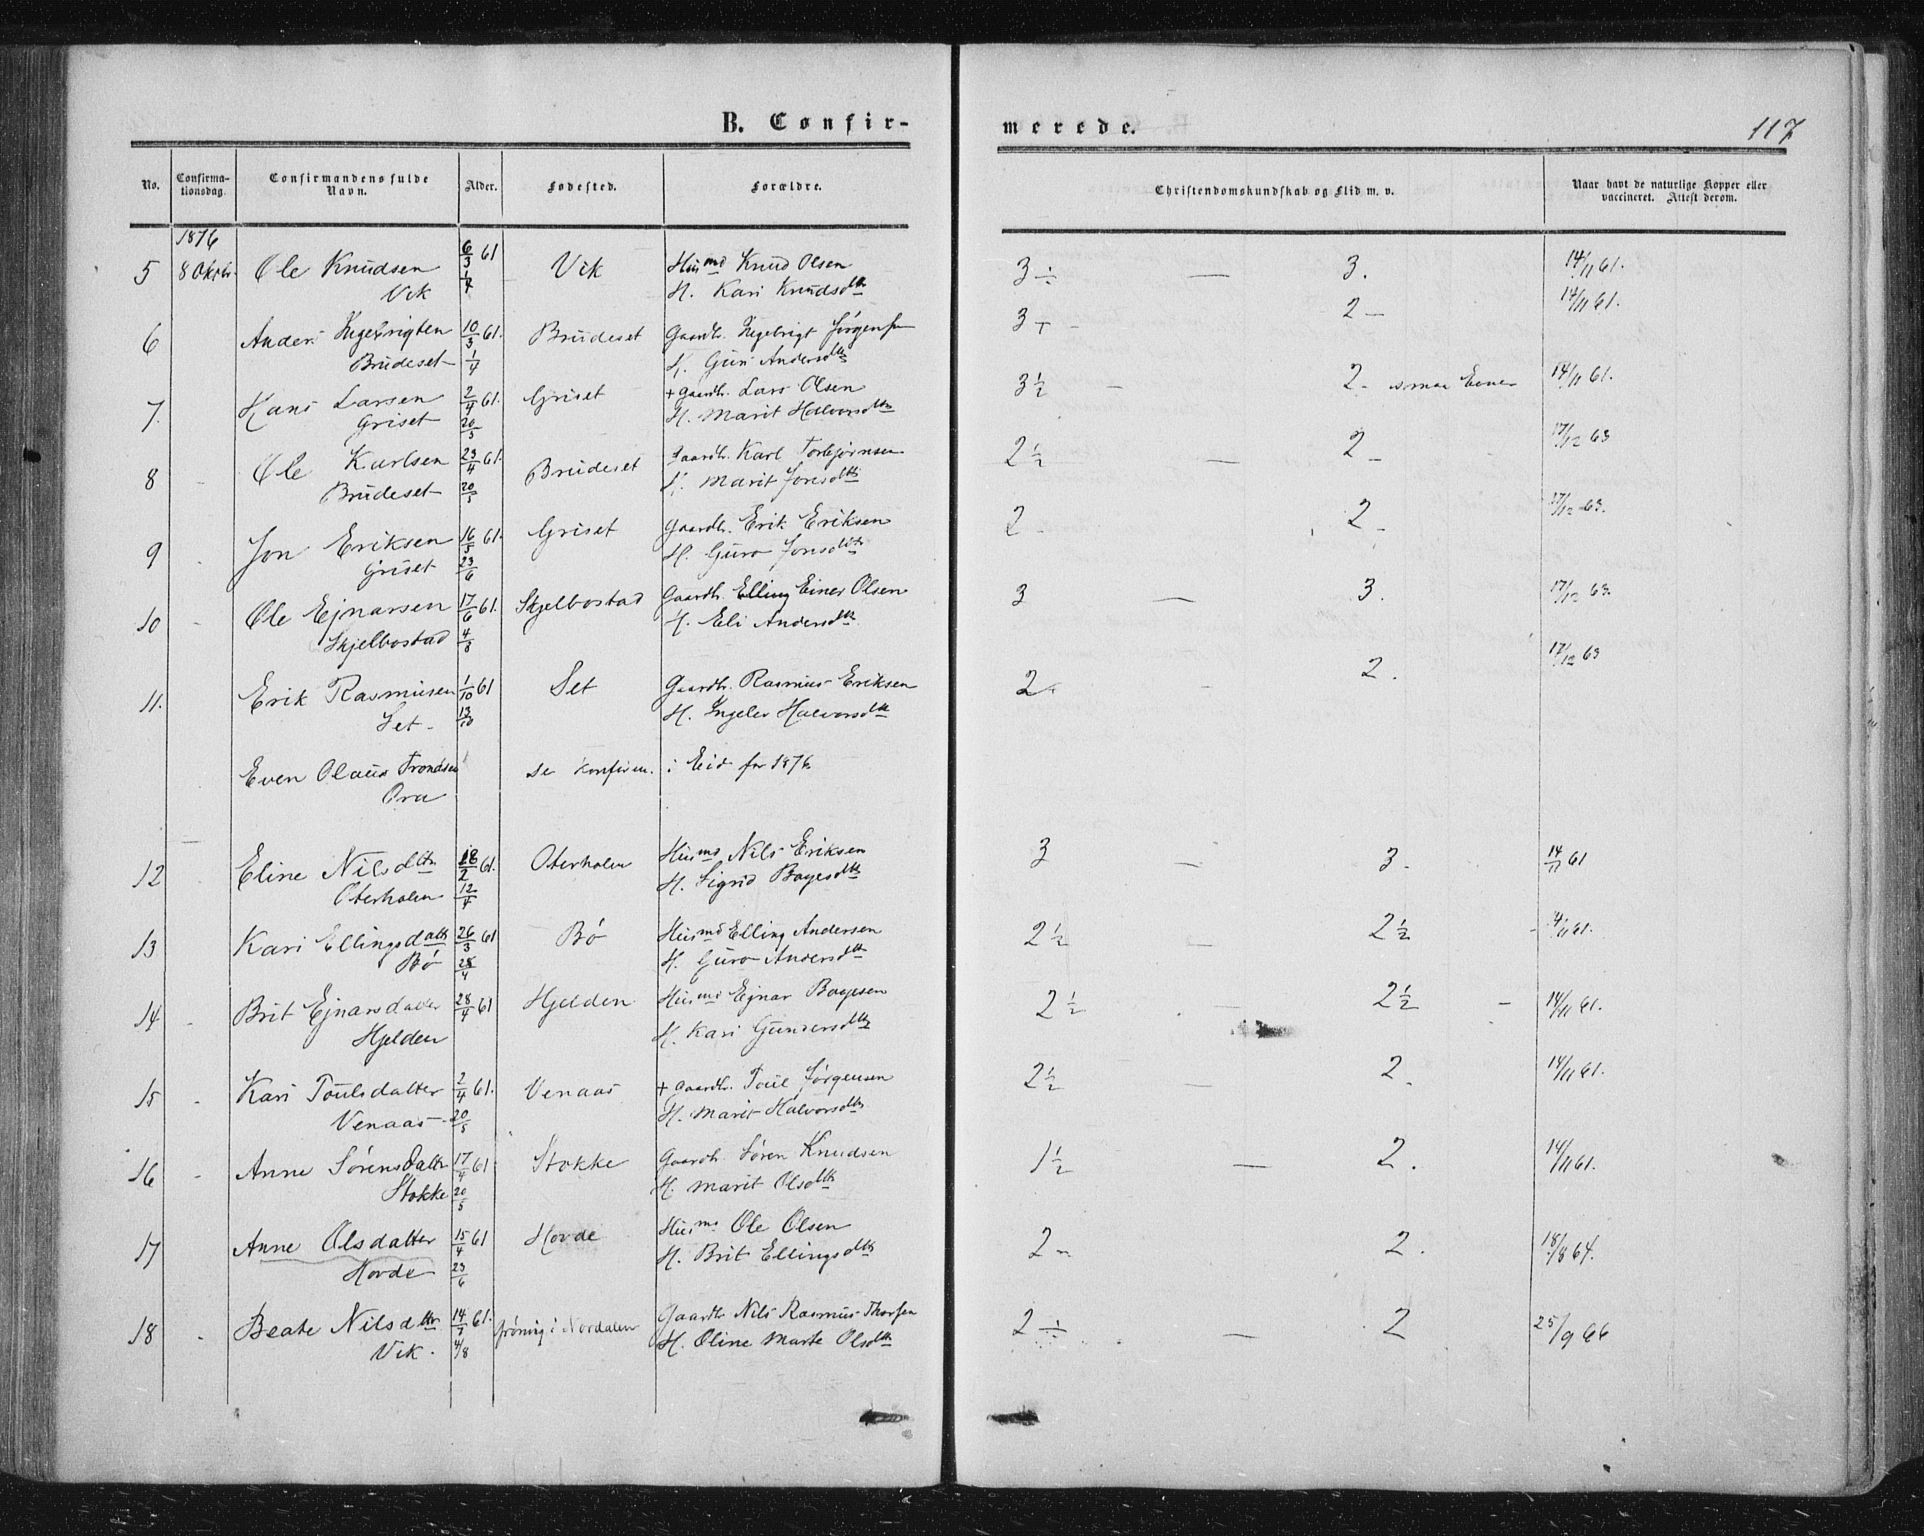 B. Confir-
merede.
117
No. Confirma-tionsdag. Confirmandens fulde Navn. Alder. Fødested. Forældre. Christendomskundskab og Flid m. v. Naar havt de naturlige Kopper eller vaccineret. Attest derom.
1876
5 8 Oktbr. Ole Knudsen 6/3 61 Vik Husmd Knud Olsen 3 ÷ — 3. 14/11 61.
Vik 1/4 H. Kari Knudsdtr
6 Anders Ingebrigten 10/3 61. Brudeset Gaardbr. Ingebrigt Jørgensen 3 + - 2 - 14/11 61.
Brudeset 1/4 H. Guri Andersdtr
7. Hans Larsen 2/4 61. Griset + Gaardbr. Lars Olsen 3 1/2 - 2 - smaa Evner 14/11 61.
Griset 20/5 H. Marit Halvorsdtr
8 - Ole Karlsen 23/4 61. Brudeset Gaardbr. Karl Torbjørnsen 2 1/2 — 2 - 17/12 63
Brudeset 20/5 H. Marit Jonsdtr
9 - Jon Eriksen 16/5 61. Griset Gaardbr. Erik Eriksen 2 - 2 - 17/12 63.
Griset 23/6 H. Guro Jonsdtr
10 - Ole Ejnarsen 17/6 61. Skjelbostad Gaardbr. Elling Einar Olsen 3 — 3. 17/12 63.
Skjelbostad 4/8 H. Eli Andersdtr
11. Erik Rasmusen 1/10 61 Set Gaardbr. Rasmus Eriksen 2 - 2. 17/12 63
Set - 13/10 H. Ingeler Halvorsdtr
Even Olaus Trondsen se Konfirm. i Eid for 1876
Ora
12 - Eline Nilsdtr 18/2 61. Oterholen Husmd Nils Eriksen 3 — 3. 14/11 61
Oterholen 12/4 H. Sigrid Boyesdtr
13 Kari Ellingsdatter 26/3 61 Bø Husmd Elling Andersen 2 1/2 — 2 1/2 - 14/11 61.
Bø 28/4 H. Guro Andersdtr
14 - Brit Ejnarsdatter 28/4 61 Hjelden Husmd Ejnar Boyesen 2 1/2 — 2 1/2 - 14/11 61.
Hjelden H. Kari Gundersdtr
15 - Kari Poulsdatter 2/4 61. Venaas + Gaardbr. Poul Jørgensen 2 1/2 — 2. 14/11 61.
Venaas 20/5 H. Marit Halvorsdtr
16 - Anne Sørensdatter 17/4 61 Stokke Gaardbr. Søren Knudsen 1 1/2 — 2. 14/11 61.
Stokke 20/5 H. Marit Olsdtr
17 Anne Olsdatter 15/4 61 Hovde Husmd Ole Olsen 2 - 2. 18/8 64.
Hovde 23/6 H. Brit Ellingsdtr
18 - Beate Nilsdtr 14/7 61. Grøning i Nordalen Gaardbr Nils Rasmus Thorsen 2 ÷ — 2 25/9 66
Vik. 4/8 H. Oline Marte Olsdtr